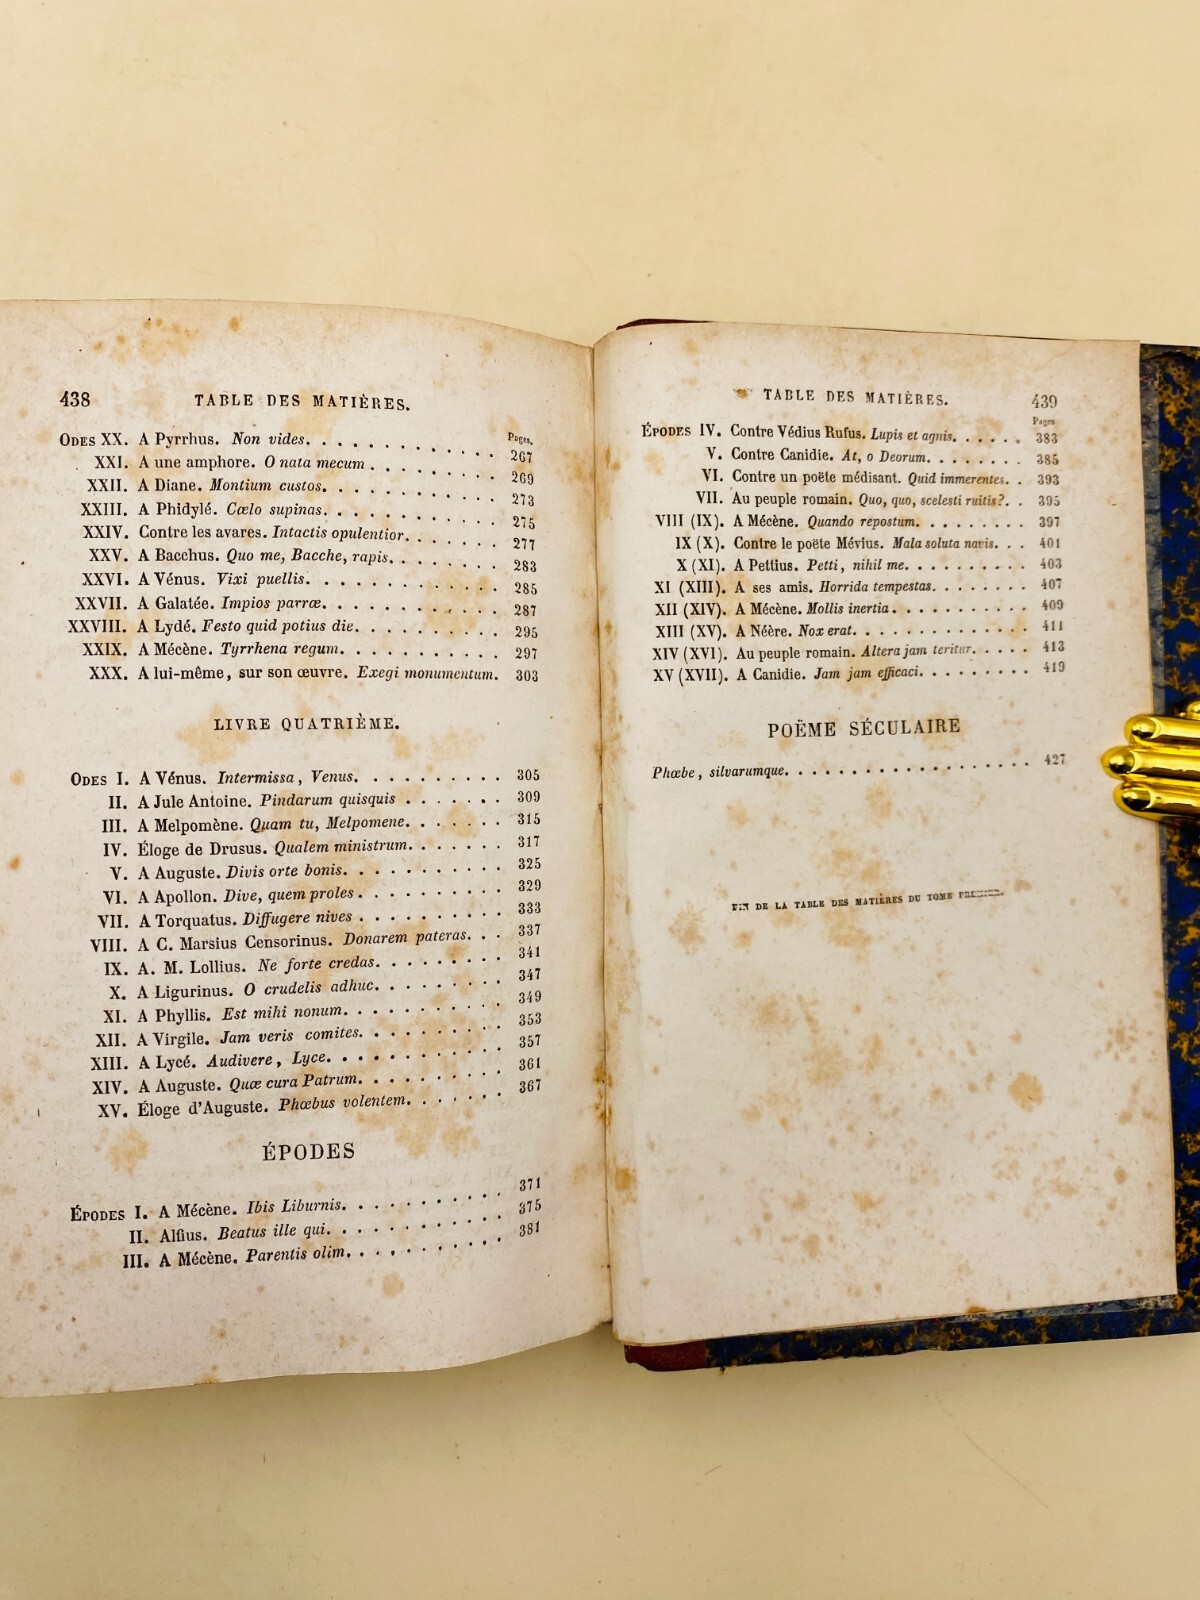 438 TABLE DES MATIÈRES.
Pages.
ODES XX. A Pyrrhus. Non vides. 267
XXI. A une amphore. O nata mecum 269
XXII. A Diane. Montium custos. 273
XXIII. A Phidylé. Cœlo supinas. 275
XXIV. Contre les avares. Intactis opulentior. 277
XXV. A Bacchus. Quo me, Bacche, rapis. 283
XXVI. A Vénus. Vixi puellis. 285
XXVII. A Galatée. Impios parræ. 287
XXVIII. A Lydé. Festo quid potius die. 295
XXIX. A Mécène. Tyrrhena regum. 297
XXX. A lui-même, sur son œuvre. Exegi monumentum. 303
LIVRE QUATRIÈME.
ODES I. A Vénus. Intermissa, Venus. 305
II. A Jule Antoine. Pindarum quisquis 309
III. A Melpomène. Quam tu, Melpomene. 315
IV. Éloge de Drusus. Qualem ministrum. 317
V. A Auguste. Divis orte bonis. 325
VI. A Apollon. Dive, quem proles 329
VII. A Torquatus. Diffugere nives 333
VIII. A C. Marsius Censorinus. Donarem pateras. 337
IX. A. M. Lollius. Ne forte credas. 341
X. A Ligurinus. O crudelis adhuc. 347
XI. A Phyllis. Est mihi nonum. 349
XII. A Virgile. Jam veris comites. 353
XIII. A Lycé. Audivere, Lyce. 357
XIV. A Auguste. Quæ cura Patrum. 361
XV. Éloge d'Auguste. Phœbus volentem. 367
ÉPODES
ÉPODES I. A Mécène. Ibis Liburnis. 371
II. Alfius. Beatus ille qui. 375
III. A Mécène. Parentis olim. 381
TABLE DES MATIÈRES. 439
Pages
ÉPODES IV. Contre Védius Rufus. Lupis et agnis. 383
V. Contre Canidie. At, o Deorum. 385
VI. Contre un poëte médisant. Quid immerentes. 393
VII. Au peuple romain. Quo, quo, scelesti ruitis?. 395
VIII (IX). A Mécène. Quando repostum. 397
IX (X). Contre le poëte Mévius. Mala soluta navis. 401
X (XI). A Pettius. Petti, nihil me. 403
XI (XIII). A ses amis. Horrida tempestas. 407
XII (XIV). A Mécène. Mollis inertia 409
XIII (XV). A Néère. Nox erat. 411
XIV (XVI). Au peuple romain. Altera jam teritur. 413
XV (XVII). A Canidie. Jam jam efficaci. 419
POËME SÉCULAIRE
Phœbe, silvarumque. 427
FIN DE LA TABLE DES MATIÈRES DU TOME PREMIER.